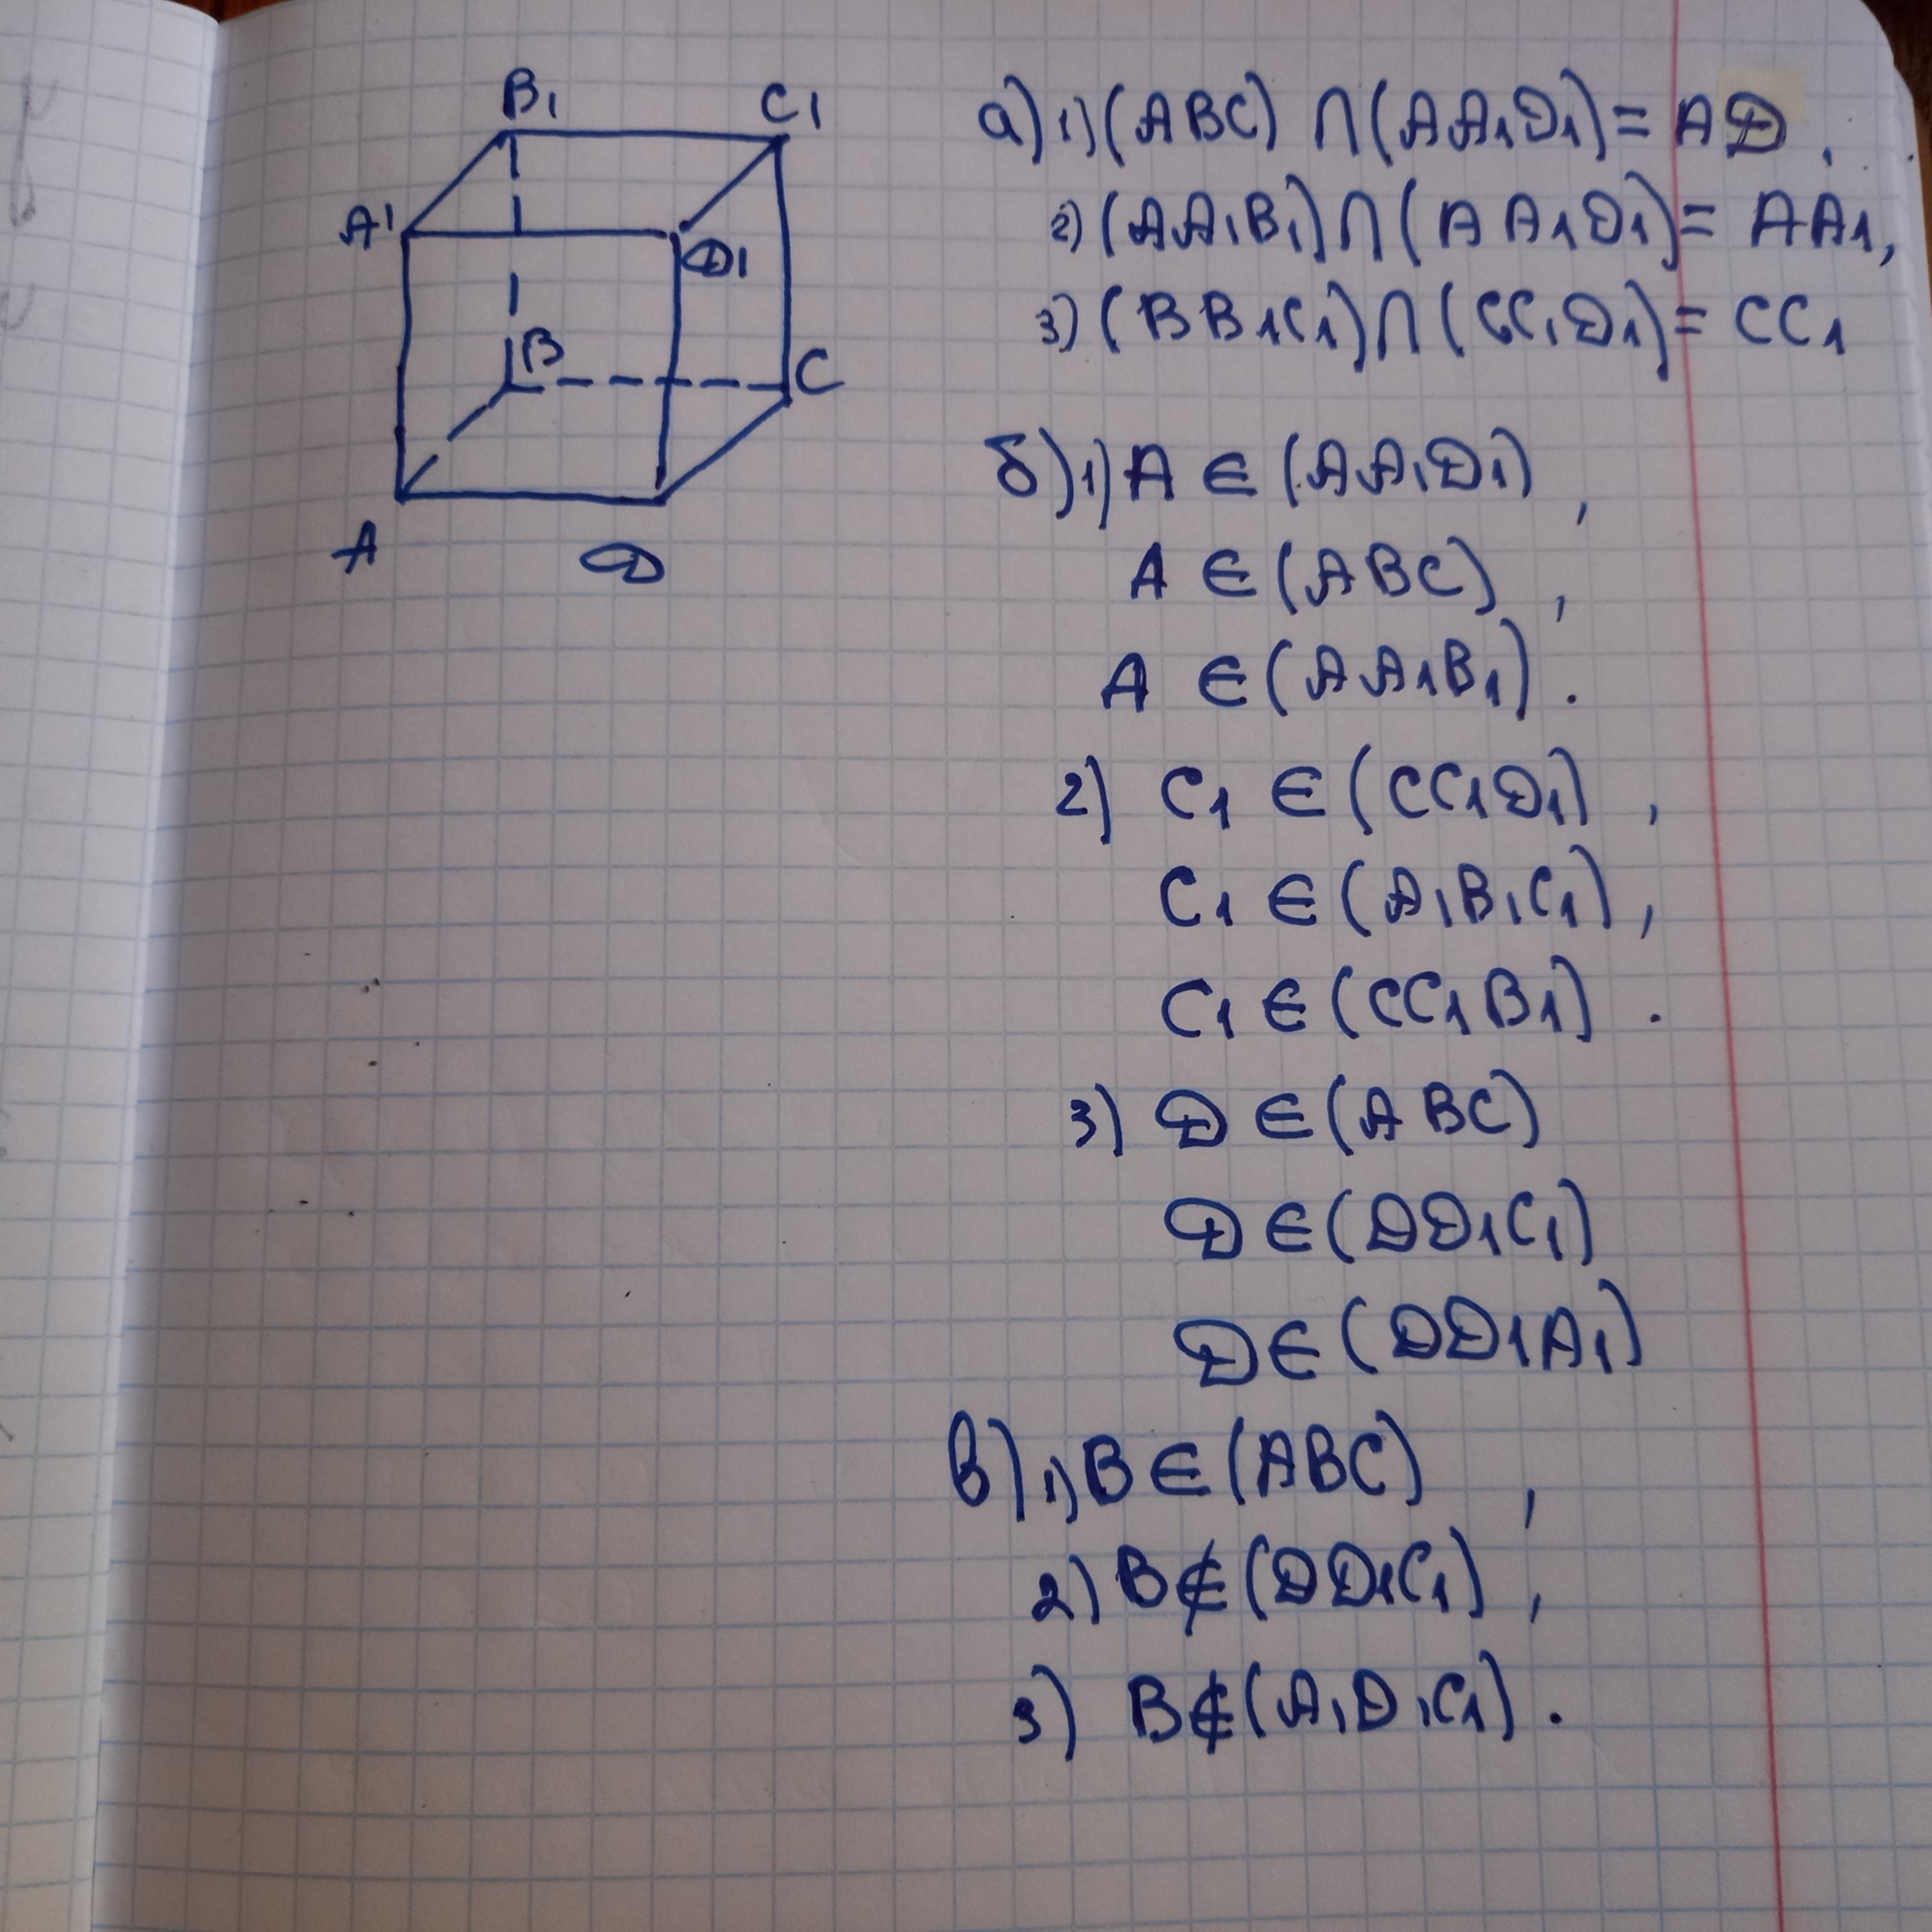 B₁ C₁
A1 D1
B C
A D
а) 1) (ABC) ∩ (AA₁D₁) = AD,
2) (AA₁B₁) ∩ (AA₁D₁) = AA₁,
3) (BB₁C₁) ∩ (CC₁D₁) = CC₁
б) 1) A ∈ (AA₁D₁),
A ∈ (ABC),
A ∈ (AA₁B₁).
2) C₁ ∈ (CC₁D₁),
C₁ ∈ (A₁B₁C₁),
C₁ ∈ (CC₁B₁).
3) D ∈ (ABC)
D ∈ (DD₁C₁)
D ∈ (DD₁A₁)
в) 1) B ∈ (ABC),
2) B ∉ (DD₁C₁),
3) B ∉ (A₁D₁C₁).